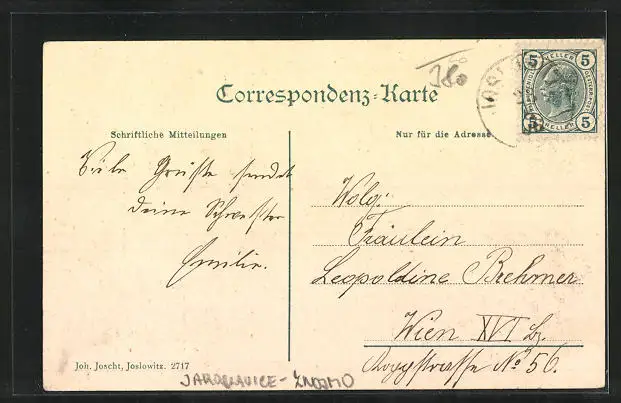 Correspondenz-Karte
Schriftliche Mitteilungen
Nur für die Adresse
5 HELLER 5
5 HELLER 5
Viele Grüsse sendet
deine Schwester
Emilie.
Wolg:
Fräulein
Leopoldine Brehmer
Wien XVI Bz.
strasse No 56.
Joh. Joscht, Joslowitz. 2717
JAROSLAVICE - ZNOJMO